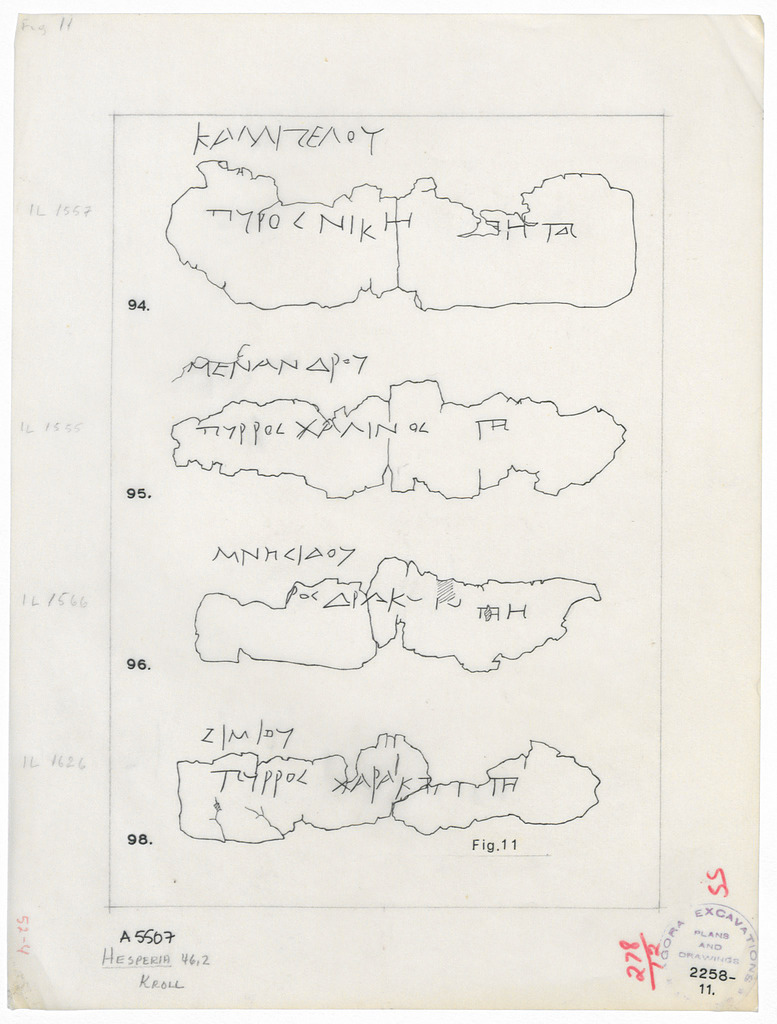 Fig 11
ΚΑΛΛΙΠΕΛΟΥ
IL 1557
ΠΥΡΟΣ ΝΙΚΗ
94.
ΜΕΝΑΝΔΡΟΥ
IL 1555
ΠΥΡΡΟΣ ΧΑΛΙΝΟΣ
95.
ΜΝΗΣΙΔΟΥ
IL 1566
ΡΟΣ ΔΡΑΚ
96.
ΣΙΜΙΟΥ
IL 1626
ΠΥΡΡΟΣ ΧΑΡΑΚ
98.
Fig.11
55
52-4
A 5507
HESPERIA 46,2
KROLL
278/12
AGORA EXCAVATIONS
PLANS
AND
DRAWINGS
2258-
11.